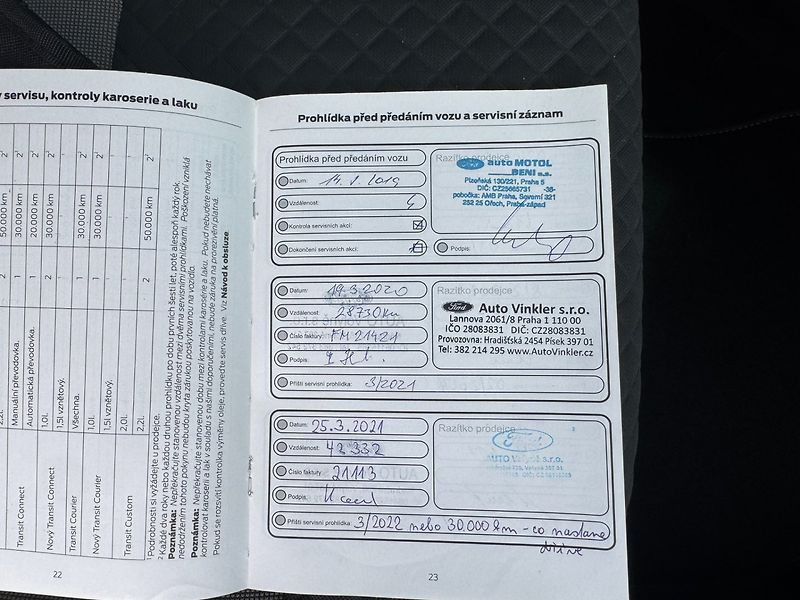 servisu, kontroly karoserie a laku
2,2l.
Manuální převodovka.
Automatická převodovka.
1,0l.
1,5l vznětový.
Všechna.
1,0l.
1,5l vznětový.
2,0l.
2,2l.
50.000 km
30.000 km
20.000 km
30.000 km
30.000 km
30.000 km
50.000 km
Transit Connect
Nový Transit Connect
Transit Courier
Nový Transit Courier
Transit Custom
¹ Podrobnosti si vyžádejte u prodejce.
² Každé dva roky nebo každou druhou prohlídku po dobu prvních šesti let, poté alespoň každý rok.
Poznámka: Nepřekračujte stanovenou vzdálenost mezi dvěma servisními prohlídkami. Poškození vzniklá
nedodržením tohoto pokynu nebudou kryta zárukou poskytovanou na vozidlo.
Poznámka: Nepřekračujte stanovenou dobu mezi kontrolami karosérie a laku. Pokud nebudete nechávat
kontrolovat karoserii a lak v souladu s našimi doporučeními, nebude záruka na prorezivění platná.
Pokud se rozsvítí kontrolka výměny oleje, proveďte servis dříve. Viz Návod k obsluze.
22
Prohlídka před předáním vozu a servisní záznam
Prohlídka před předáním vozu
Datum: 14.1.2019
Vzdálenost: 4
Kontrola servisních akcí:
Dokončení servisních akcí:
Razítko prodejce
Ford auto MOTOL
BENI a.s.
Plzeňská 130/221, Praha 5
DIČ: CZ25665731 -38-
pobočka: AMB Praha, Severní 321
252 25 Ořech, Praha-západ
Podpis:
Datum: 19.3.2020
Vzdálenost: 28730 km
Číslo faktury: FM 21421
Podpis:
Příští servisní prohlídka: 3/2021
Razítko prodejce
Ford Auto Vinkler s.r.o.
Lannova 2061/8 Praha 1 110 00
IČO 28083831 DIČ: CZ28083831
Provozovna: Hradišťská 2454 Písek 397 01
Tel: 382 214 295 www.AutoVinkler.cz
Datum: 25.3.2021
Vzdálenost: 42332
Číslo faktury: 21113
Podpis:
Příští servisní prohlídka: 3/2022 nebo 30.000 km - co nastane
dříve
Razítko prodejce
Ford
AUTO s.r.o.
23